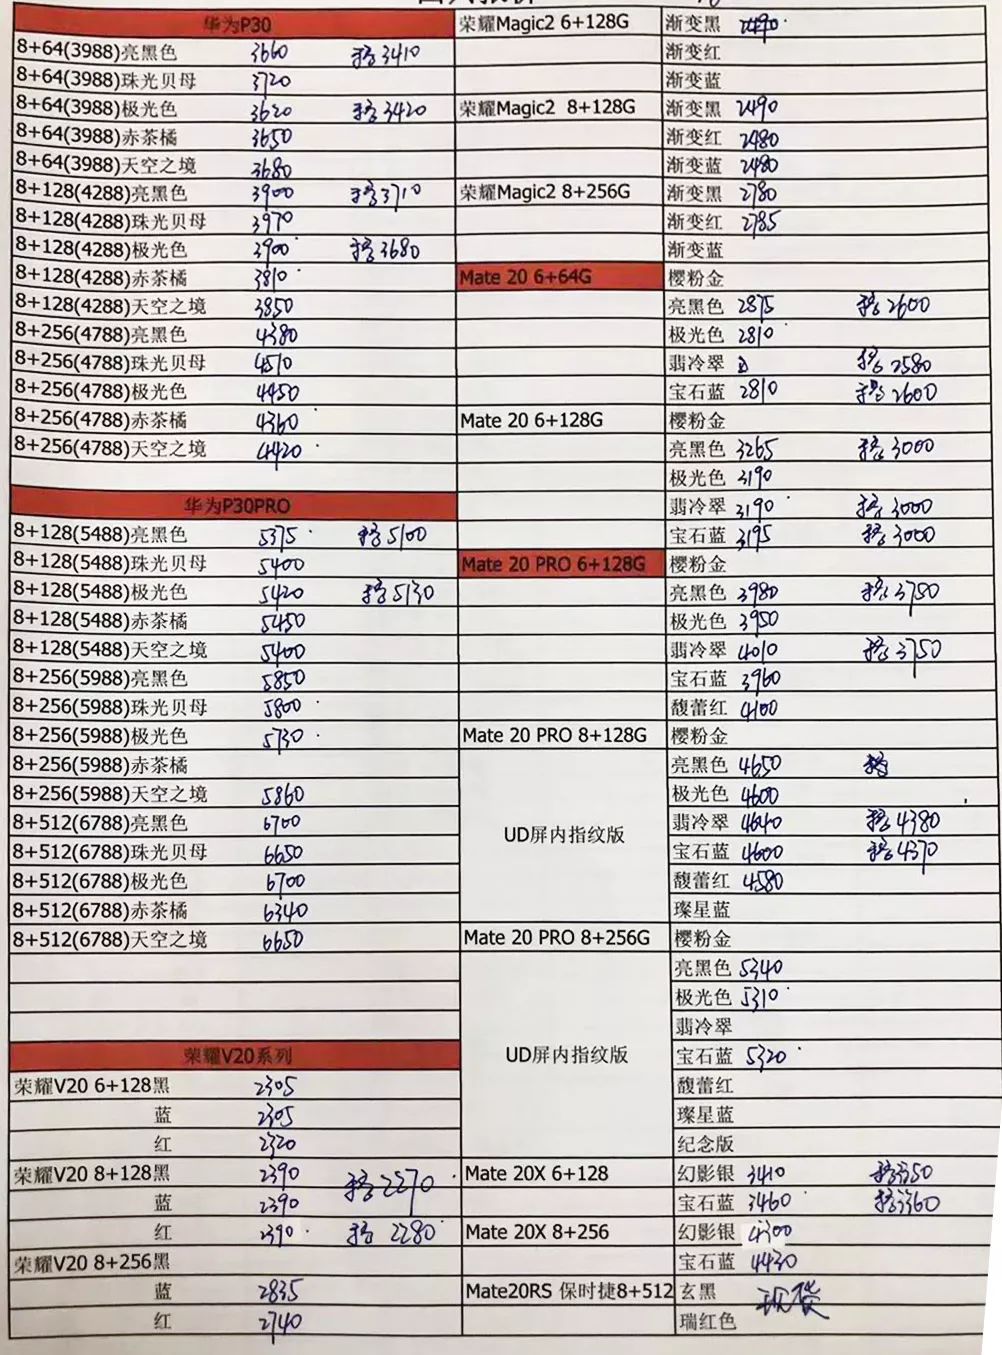 华为P30
8+64(3988)亮黑色 3660 3410
8+64(3988)珠光贝母 3720
8+64(3988)极光色 3620 3420
8+64(3988)赤茶橘 3650
8+64(3988)天空之境 3680
8+128(4288)亮黑色 3900 3710
8+128(4288)珠光贝母 3970
8+128(4288)极光色 3900 3680
8+128(4288)赤茶橘 3810
8+128(4288)天空之境 3850
8+256(4788)亮黑色 4380
8+256(4788)珠光贝母 4510
8+256(4788)极光色 4450
8+256(4788)赤茶橘 4360
8+256(4788)天空之境 4420
华为P30PRO
8+128(5488)亮黑色 5375 5100
8+128(5488)珠光贝母 5400
8+128(5488)极光色 5420 5130
8+128(5488)赤茶橘 5450
8+128(5488)天空之境 5400
8+256(5988)亮黑色 5850
8+256(5988)珠光贝母 5800
8+256(5988)极光色 5730
8+256(5988)赤茶橘
8+256(5988)天空之境 5860
8+512(6788)亮黑色 6700
8+512(6788)珠光贝母 6650
8+512(6788)极光色 6700
8+512(6788)赤茶橘 6340
8+512(6788)天空之境 6650
荣耀V20系列
荣耀V20 6+128黑 2305
蓝 2305
红 2320
荣耀V20 8+128黑 2390 2270
蓝 2390
红 2390 2280
荣耀V20 8+256黑
蓝 2835
红 2740
荣耀Magic2 6+128G 渐变黑 2490
渐变红
渐变蓝
荣耀Magic2 8+128G 渐变黑 2490
渐变红 2480
渐变蓝 2480
荣耀Magic2 8+256G 渐变黑 2780
渐变红 2785
渐变蓝
Mate 20 6+64G 樱粉金
亮黑色 2875 2600
极光色 2810
翡冷翠 2580
宝石蓝 2810 2600
Mate 20 6+128G 樱粉金
亮黑色 3265 3000
极光色 3190
翡冷翠 3190 3000
宝石蓝 3195 3000
Mate 20 PRO 6+128G 樱粉金
亮黑色 3980 3750
极光色 3950
翡冷翠 4010 3750
宝石蓝 3960
馥蕾红 4100
Mate 20 PRO 8+128G 樱粉金
UD屏内指纹版
亮黑色 4650
极光色 4600
翡冷翠 4640 4380
宝石蓝 4600 4370
馥蕾红 4580
璨星蓝
Mate 20 PRO 8+256G 樱粉金
UD屏内指纹版
亮黑色 5340
极光色 5310
翡冷翠
宝石蓝 5320
馥蕾红
璨星蓝
纪念版
Mate 20X 6+128 幻影银 3410 3350
宝石蓝 3460 3360
Mate 20X 8+256 幻影银 4300
宝石蓝 4430
Mate20RS 保时捷8+512 玄黑 现货
瑞红色